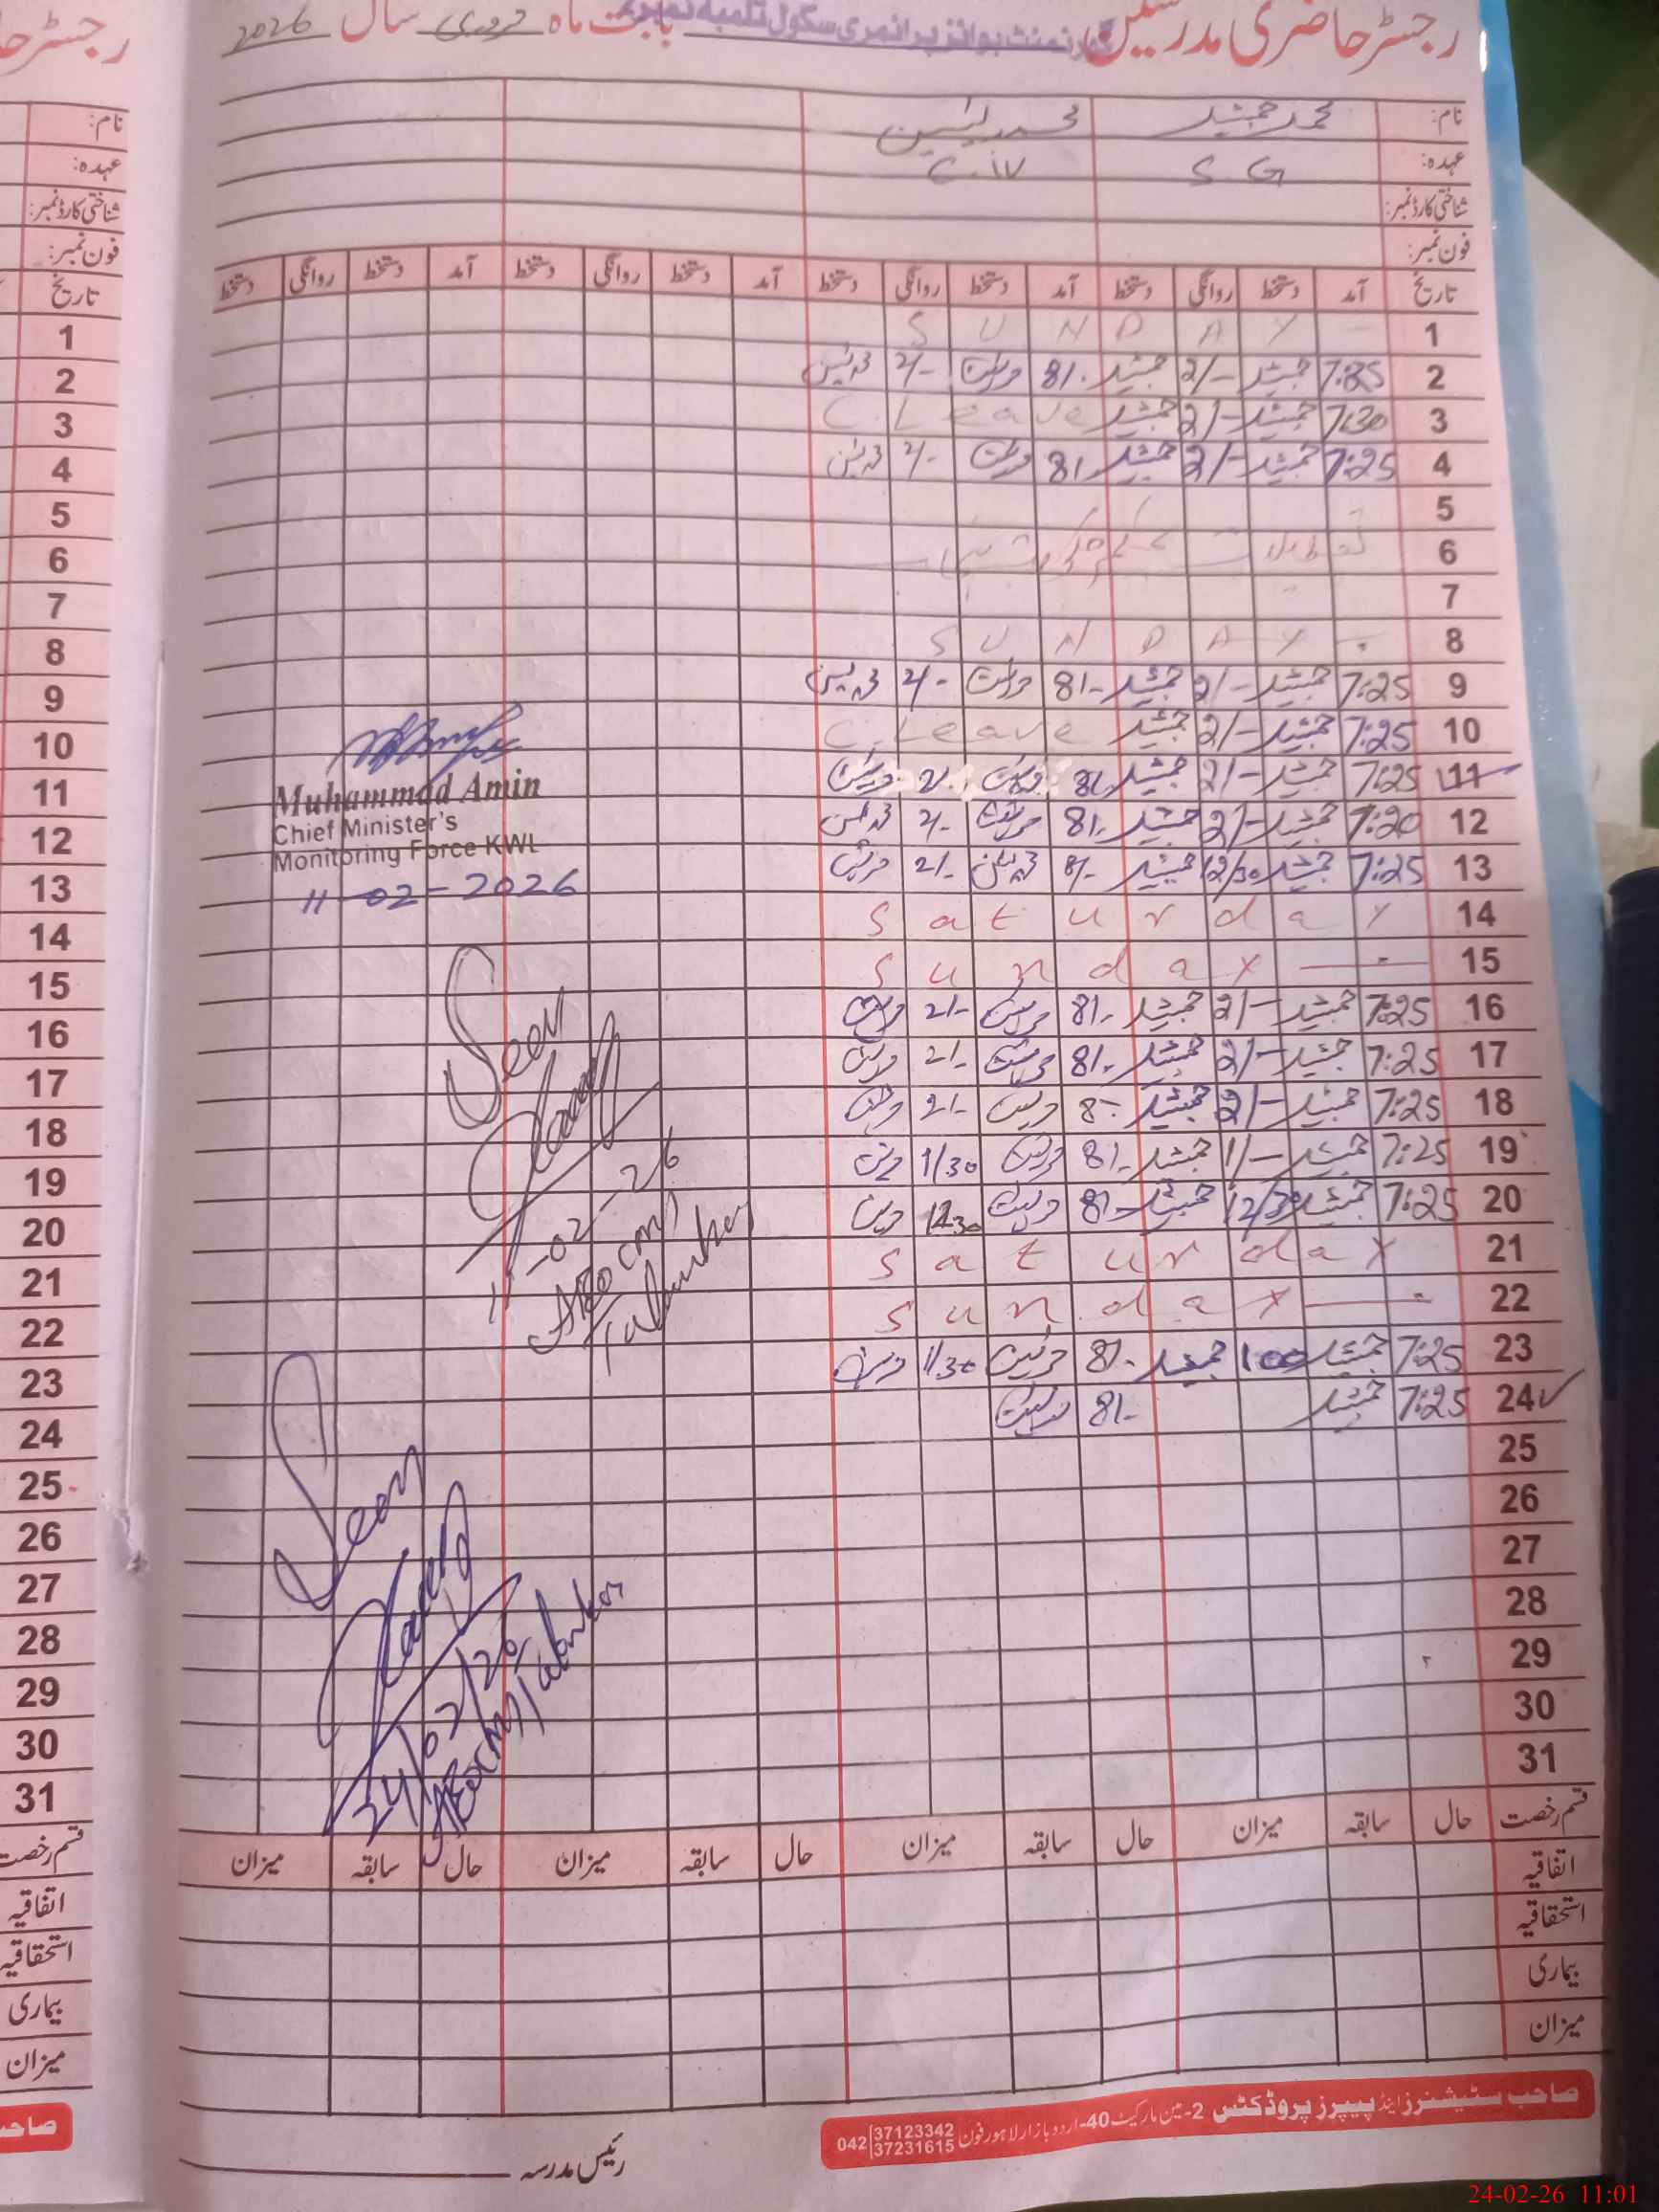 رجسٹر حاضری مدرسین گورنمنٹ بوائز پرائمری سکول تلمبہ نمبر بابت ماہ فروری سال 2026
نام: محمد جمشید محمد یٰسین
عہدہ: S.G C.iv
شناختی کارڈ نمبر:
فون نمبر:
تاریخ آمد دستخط روانگی دستخط آمد دستخط روانگی دستخط آمد دستخط روانگی دستخط آمد دستخط روانگی دستخط
1 SUNDAY
2 7:25 جمشید 2/- جمشید 8/- 2/-
3 7:30 جمشید 2/- جمشید C.Leave
4 7:25 جمشید 2/- جمشید 8/- 2/-
5
6 تعطیلات
7
8 SUNDAY
9 7:25 جمشید 2/- جمشید 8/- 2/-
10 7:25 جمشید 2/- جمشید C.Leave
11 7:25 جمشید 2/- جمشید 8/- 2/-
12 7:20 جمشید 2/- جمشید 8/- 2/-
13 7:25 جمشید 12/30 جمشید 8/- 2/-
14 Saturday
15 Sunday
16 7:25 جمشید 2/- جمشید 8/- 2/-
17 7:25 جمشید 2/- جمشید 8/- 2/-
18 7:25 جمشید 2/- جمشید 8/- 2/-
19 7:25 جمشید 1/- جمشید 8/- 1/30
20 7:25 جمشید 12/30 جمشید 8/- 12:30
21 Saturday
22 Sunday
23 7:25 جمشید 100 جمشید 8/- 1/30
24 7:25 جمشید 8/-
25
26
27
28
29
30
31
Muhammad Amin
Chief Minister's
Monitoring Force KWL
11-02-2026
Seen
11-02-26
Seen
24/02/26
قسم رخصت حال سابقہ میزان حال سابقہ میزان حال سابقہ میزان حال سابقہ میزان
اتفاقیہ
استحقاقیہ
بیماری
میزان
صاحب سٹیشنرز اینڈ پیپرز پروڈکٹس 2-مین مارکیٹ 40-اردو بازار لاہور فون 042 37123342
37231615
رئیس مدرسہ
رجسٹر حا
نام:
عہدہ:
شناختی کارڈ نمبر:
فون نمبر:
تاریخ
1
2
3
4
5
6
7
8
9
10
11
12
13
14
15
16
17
18
19
20
21
22
23
24
25
26
27
28
29
30
31
قسم رخصت
اتفاقیہ
استحقاقیہ
بیماری
میزان
صاحب
24-02-26 11:01